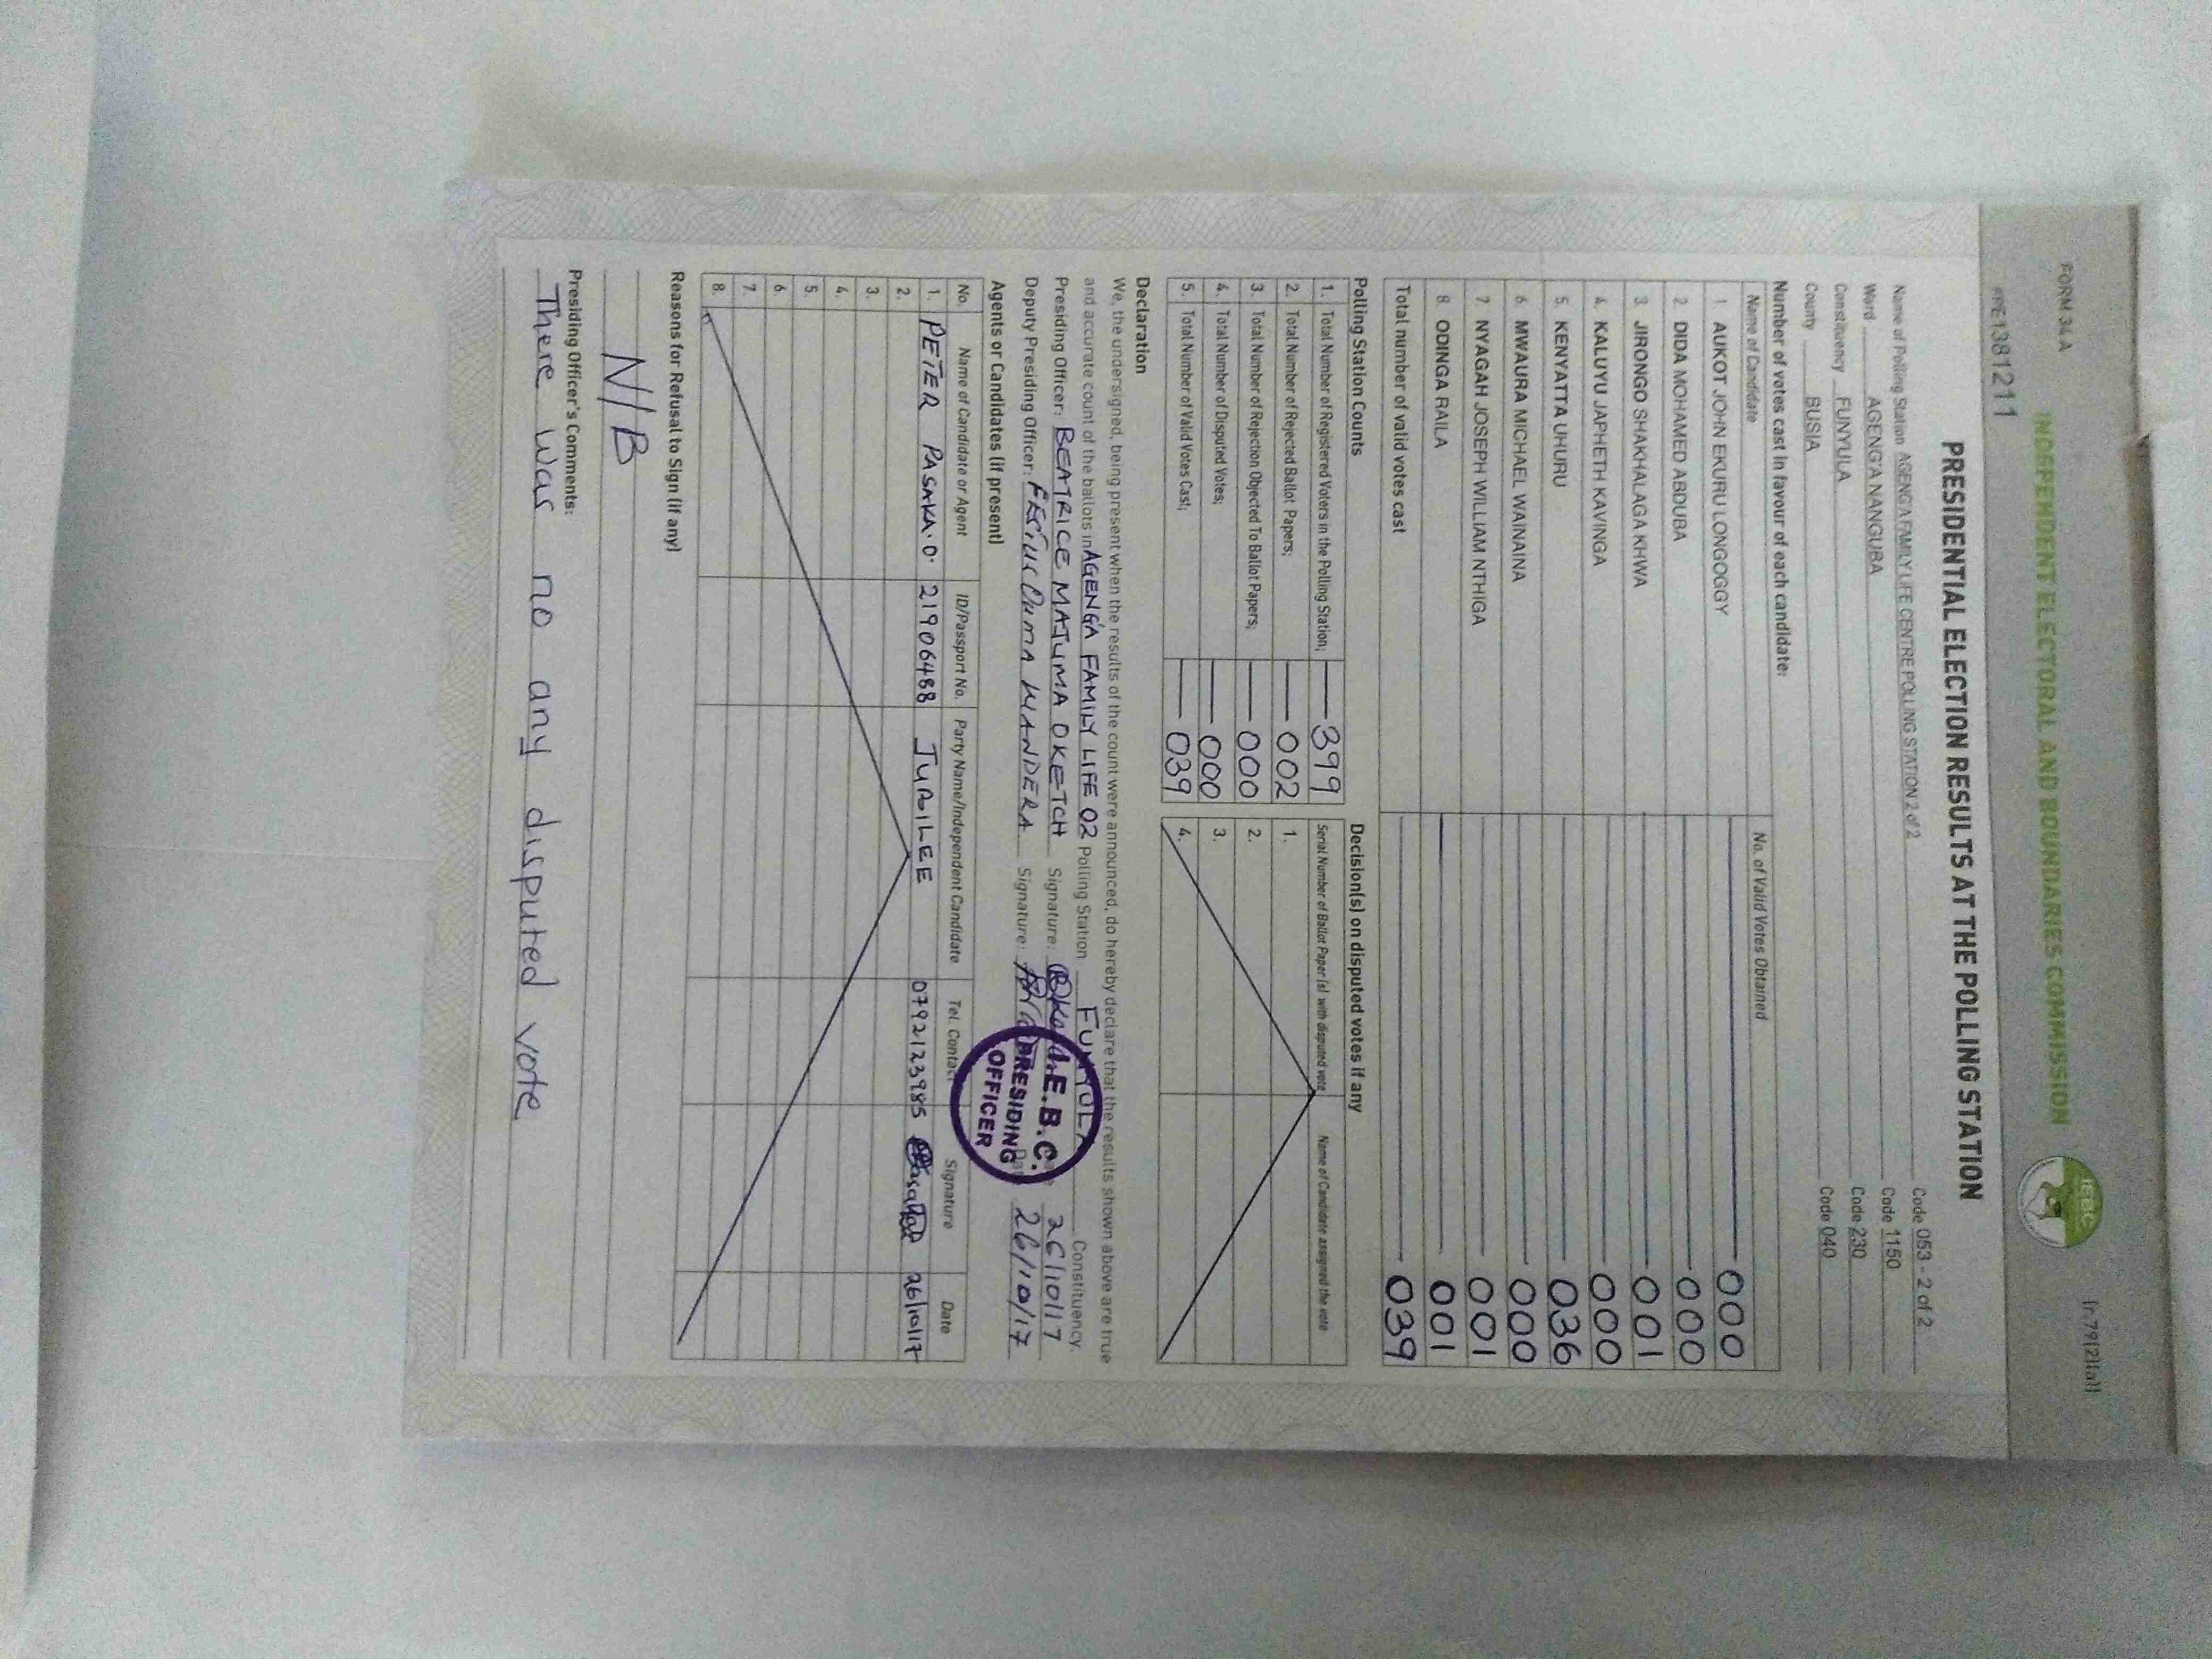 FORM 34A
(r.79(2)(a))
INDEPENDENT ELECTORAL AND BOUNDARIES COMMISSION
iebc
PRESIDENTIAL ELECTION RESULTS AT THE POLLING STATION
Name of Polling Station AGENG'A FAMILY LIFE CENTRE POLLING STATION 2 of 2 Code 053 - 2 of 2
Ward AGENG'A NANGUBA Code 1150
Constituency FUNYULA Code 230
County BUSIA Code 040
Number of votes cast in favour of each candidate:
Name of Candidate No. of Valid Votes Obtained
1 AUKOT JOHN EKURU LONGOGGY 000
2 DIDA MOHAMED ABDUBA 000
3 JIRONGO SHAKHALAGA KHWA 001
4 KALUYU JAPHETH KAVINGA 000
5 KENYATTA UHURU 036
6 MWAURA MICHAEL WAINAINA 000
7 NYAGAH JOSEPH WILLIAM NTHIGA 001
8 ODINGA RAILA 001
Total number of valid votes cast 039
Polling Station Counts
1. Total Number of Registered Voters in the Polling Station; 399
2. Total Number of Rejected Ballot Papers; 002
3. Total Number of Rejection Objected To Ballot Papers; 000
4. Total Number of Disputed Votes; 000
5. Total Number of Valid Votes Cast; 039
Decision(s) on disputed votes if any
Serial Number of Ballot Paper (s) with disputed vote Name of Candidate assigned the vote
1.
2.
3.
4.
Declaration
We, the undersigned, being present when the results of the count were announced, do hereby declare that the results shown above are true
and accurate count of the ballots in AGENG'A FAMILY LIFE 02 Polling Station FUNYULA Constituency.
Presiding Officer: BEATRICE MAJUMA OKETCH Signature: 26/10/17
Deputy Presiding Officer: WANDERA Signature: 26/10/17
I.E.B.C.
PRESIDING
OFFICER
Agents or Candidates (if present)
No. Name of Candidate or Agent ID/Passport No. Party Name/Independent Candidate Tel. Contact Signature Date
1. PETER PASAKA.O. 21906488 JUBILEE 0792123985 26/10/17
2.
3.
4.
5.
6.
7.
8.
Reasons for Refusal to Sign (if any)
N/B
Presiding Officer's Comments:
There was no any disputed vote